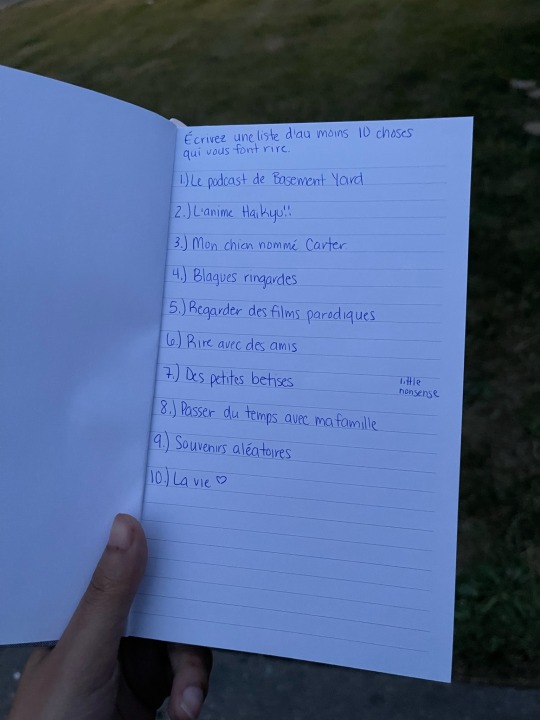 Écrivez une liste d'au moins 10 choses
qui vous font rire.
1.) Le podcast de Basement Yard
2.) L'anime Haikyu!!
3.) Mon chien nommé Carter
4.) Blagues ringardes
5.) Regarder des films parodiques
6.) Rire avec des amis
7.) Des petites betises
little
nonsense
8.) Passer du temps avec ma famille
9.) Souvenirs aléatoires
10.) La vie ♡